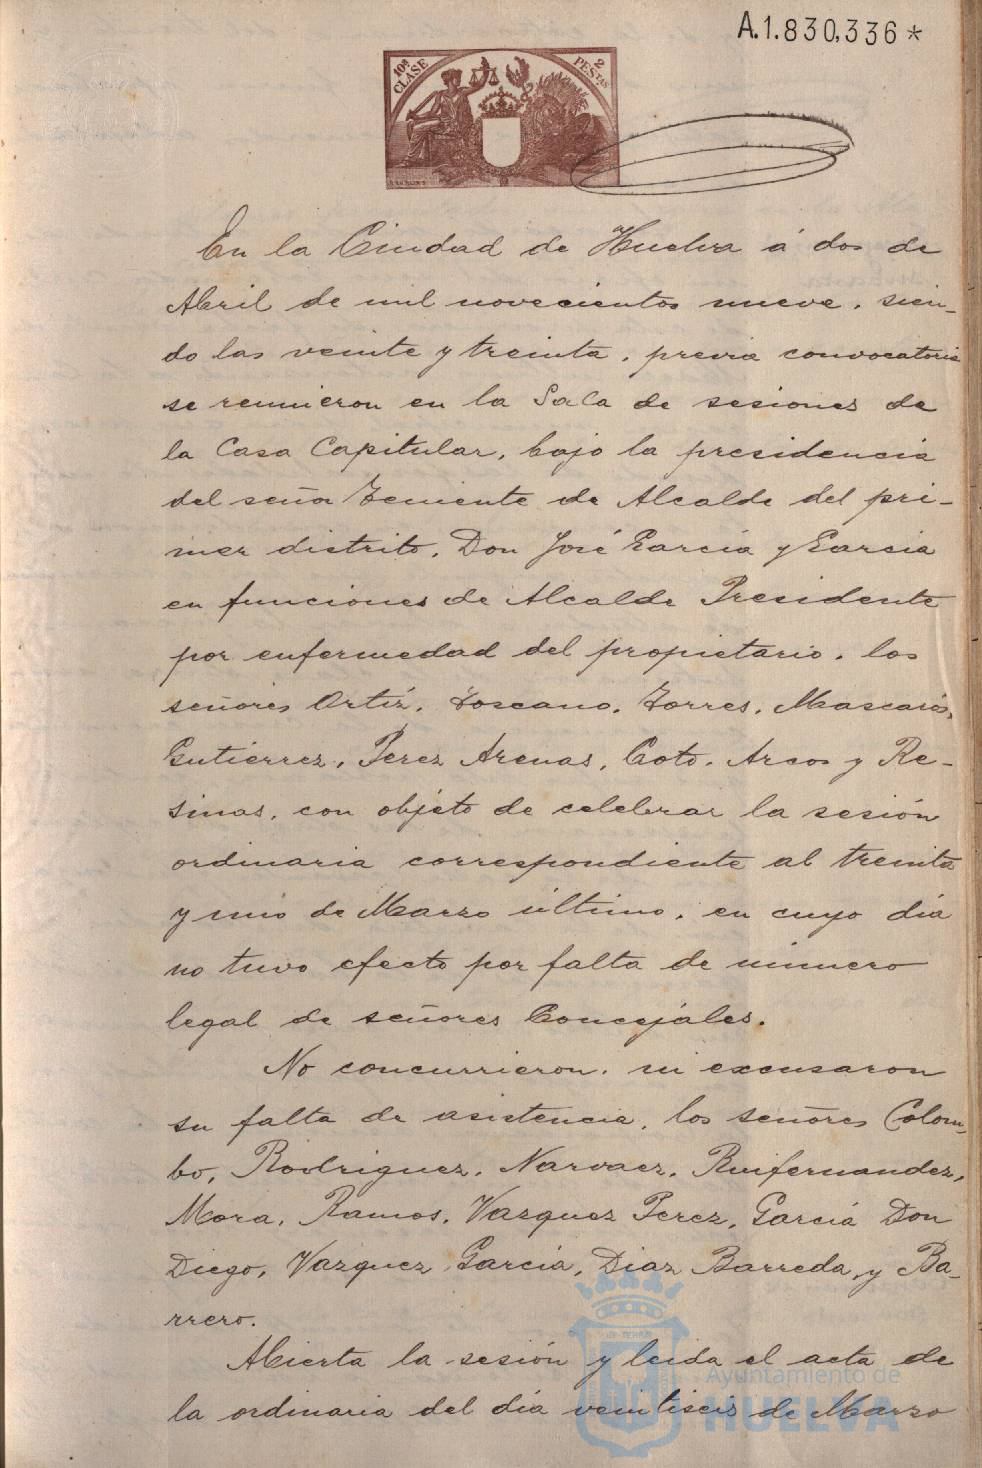 A.1.830,336*
10ª CLASE
2 PESTAS
En la Ciudad de Huelva á dos de
Abril de mil novecientos nueve, sien-
do las veinte y treinta, previa convocatoria
se reunieron en la Sala de sesiones de
la Casa Capitular, bajo la presidencia
del señor Teniente de Alcalde del pri-
mer distrito, Don José García y García
en funciones de Alcalde Presidente
por enfermedad del propietario, los
señores Ortíz, Toscano, Torres, Mascarós,
Gutiérrez, Perez Arenas, Coto, Arcos y Re-
sinas, con objeto de celebrar la sesión
ordinaria correspondiente al treinta
y uno de Marzo último, en cuyo día
no tuvo efecto por falta de número
legal de señores Concejales.
No concurrieron, ni excusaron
su falta de asistencia, los señores Colom-
bo, Rodriguez, Narvaez, Ruifernandez,
Mora, Ramos, Vazquez Perez, García Don
Diego, Vazquez García, Diaz Barreda, y Ba-
rrero.
Abierta la sesión y leida el acta de
la ordinaria del día veintiseis de Marzo
Ayuntamiento de
HUELVA